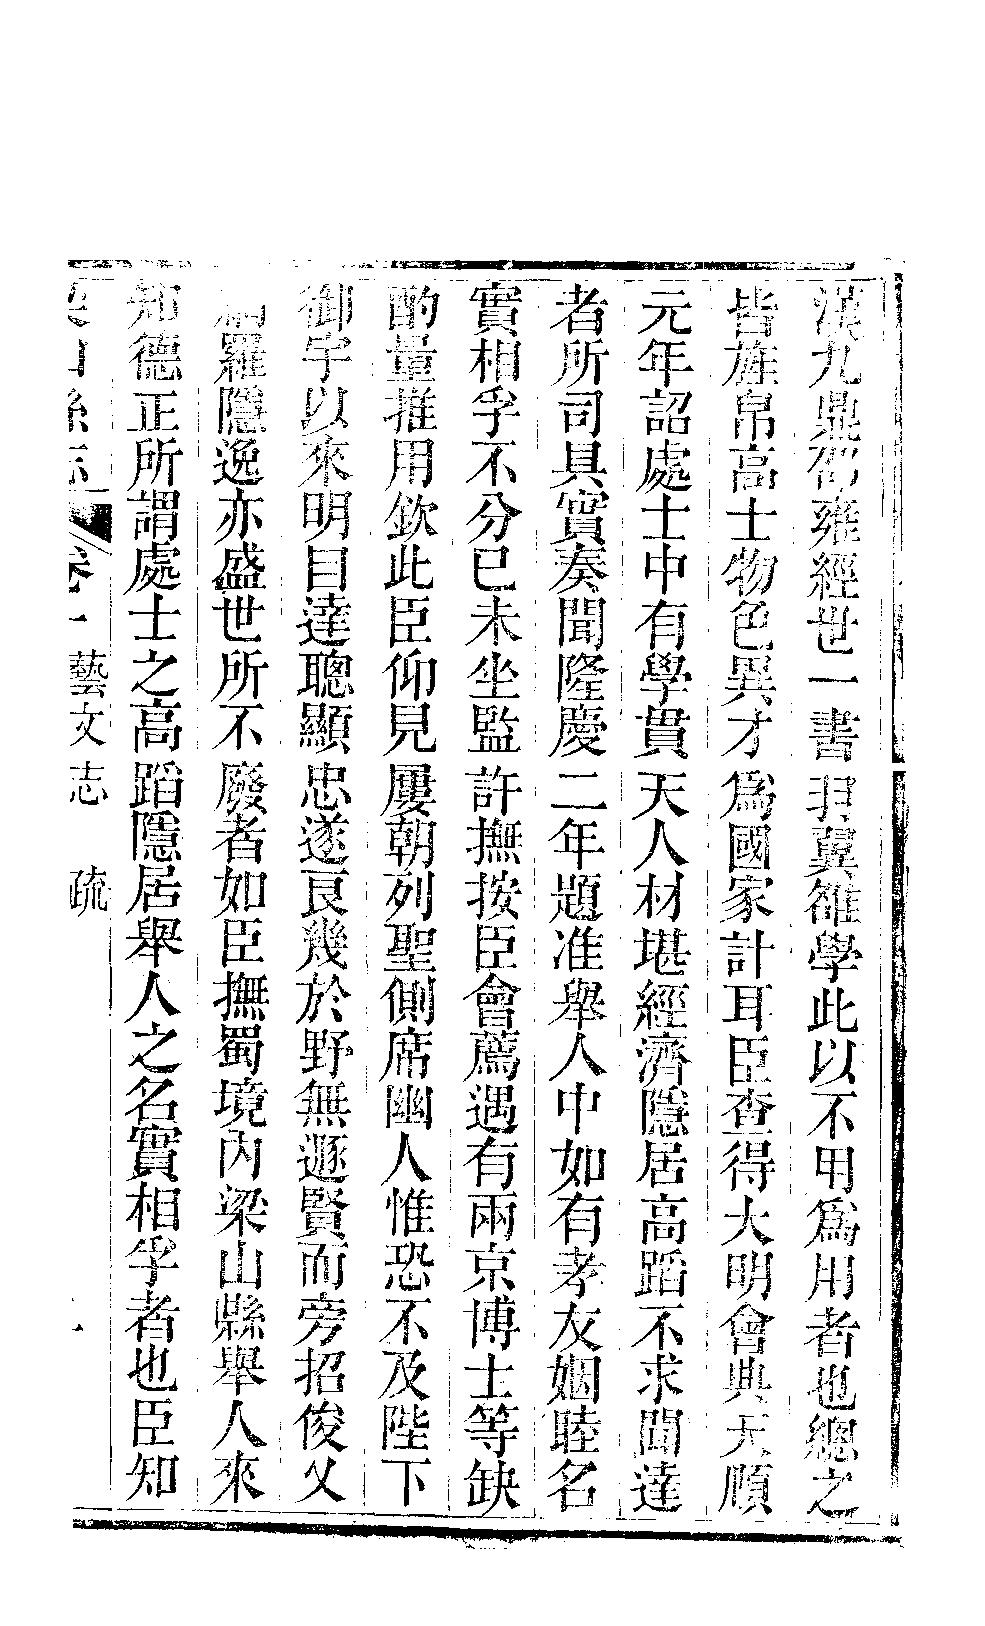 漢九鼎邵雍經世一書羽翼雒學此以不用爲用者也總之
皆旌帛高士物色異才爲國家計耳臣查得大明會典天順
元年詔處士中有學貫天人材堪經濟隱居高蹈不求聞達
者所司具實奏聞隆慶二年題准舉人中如有孝友婣睦名
實相孚不分已未坐監許撫按臣會薦遇有兩京博士等缺
酌量推用欽此臣仰見屢朝列聖側席幽人惟恐不及陛下
御宇以來明目達聰顯忠遂良幾於野無遯賢而旁招俊乂
網羅隱逸亦盛世所不廢者如臣撫蜀境內梁山縣舉人來
知德正所謂處士之高蹈隱居舉人之名實相孚者也臣知
梁山縣志 卷十 藝文志 疏